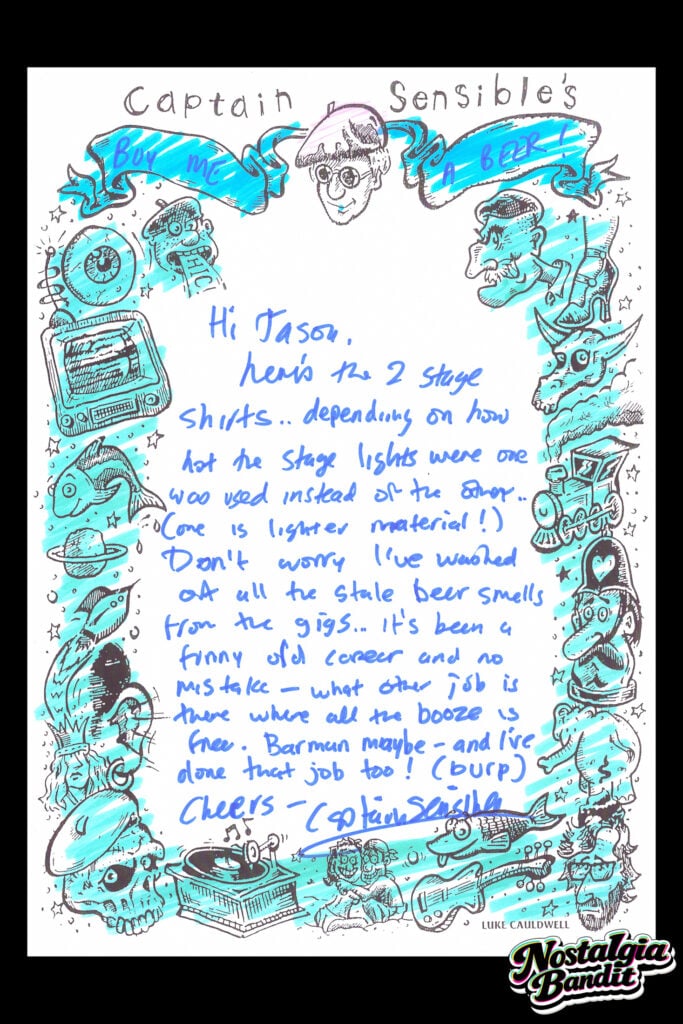 Captain Sensible's
BUY ME A BEER!
HIC
Hi Jason,
here's the 2 stage
shirts.. depending on how
hot the stage lights were one
was used instead of the other..
(one is lighter material!)
Don't worry I've washed
out all the stale beer smells
from the gigs... it's been a
funny old career and no
mistake - what other job is
there where all the booze is
free. Barman maybe - and I've
done that job too! (burp)
Cheers - Captain Sensible
LUKE CAULDWELL
Nostalgia
Bandit